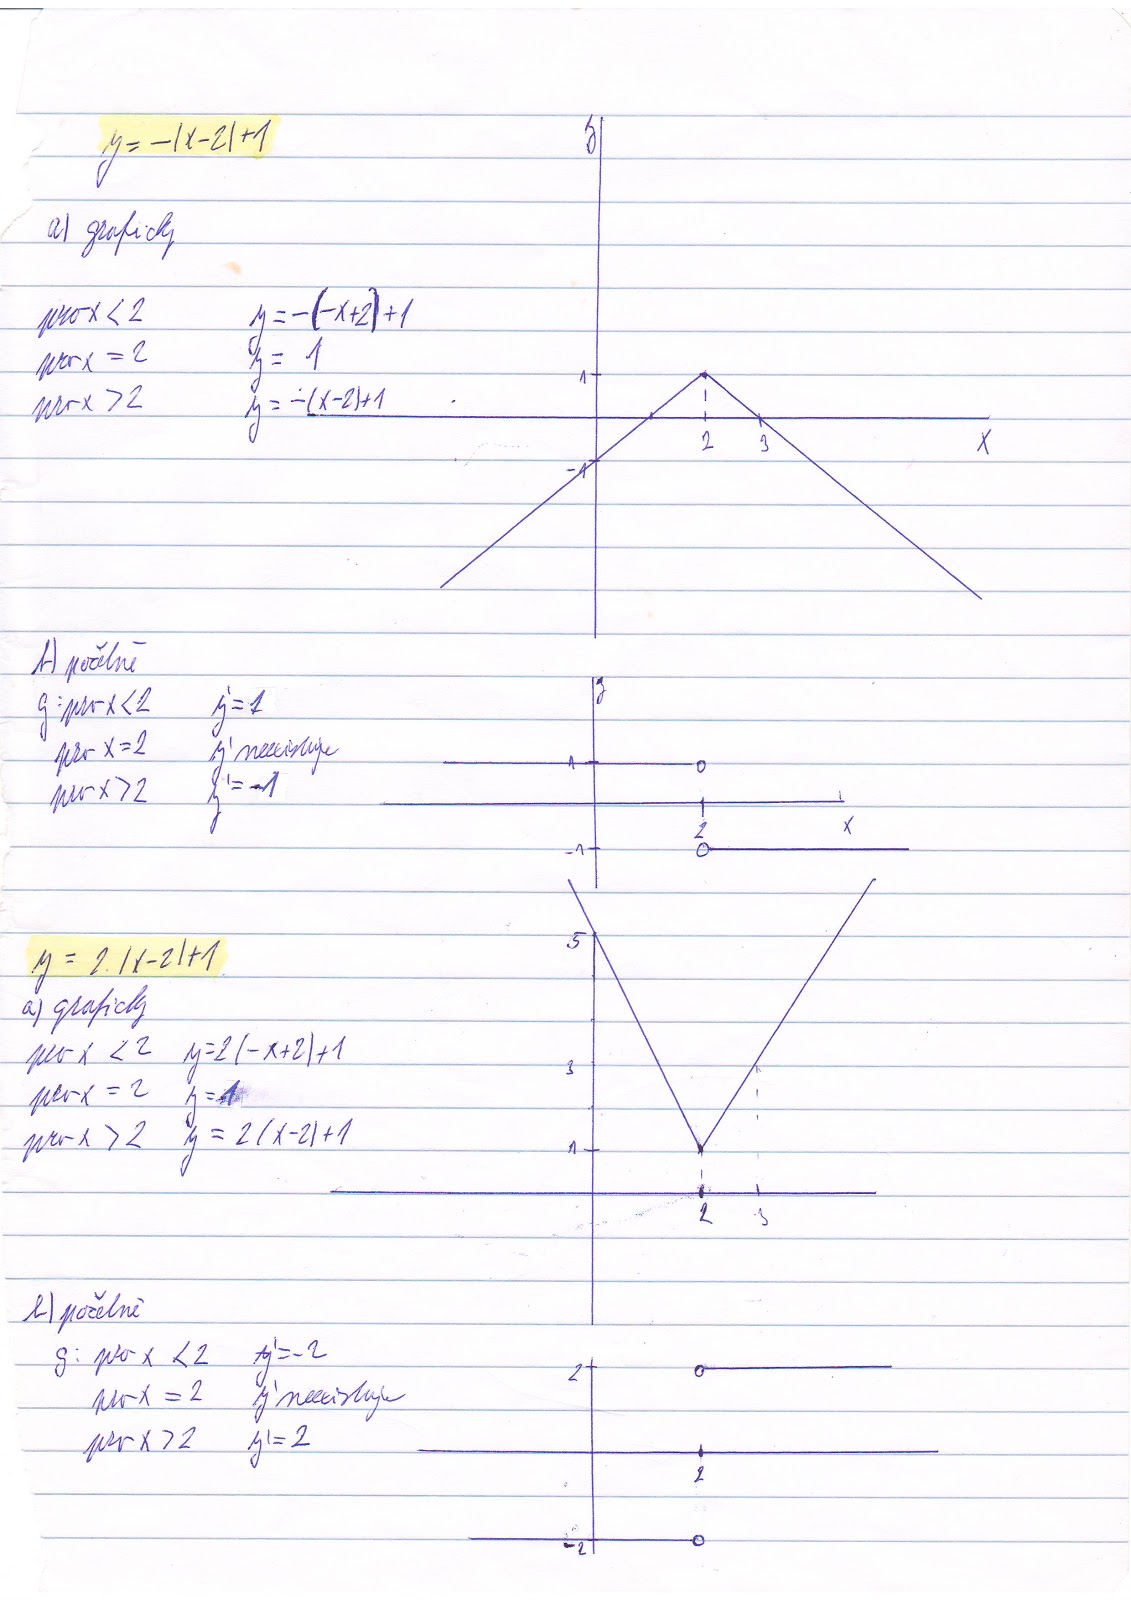 y = -|x-2|+1
a) graficky
pro x < 2 y = -(-x+2)+1
pro x = 2 y = 1
pro x > 2 y = -(x-2)+1
y
1
-1
2 3
x
b) početně
g: pro x < 2 y' = 1
pro x = 2 y' neexistuje
pro x > 2 y' = -1
y
1
2
x
-1
y = 2.|x-2|+1
a) graficky
pro x < 2 y = 2(-x+2)+1
pro x = 2 y = 1
pro x > 2 y = 2(x-2)+1
5
3
1
2 3
b) početně
g: pro x < 2 y' = -2
pro x = 2 y' neexistuje
pro x > 2 y' = 2
2
2
-2